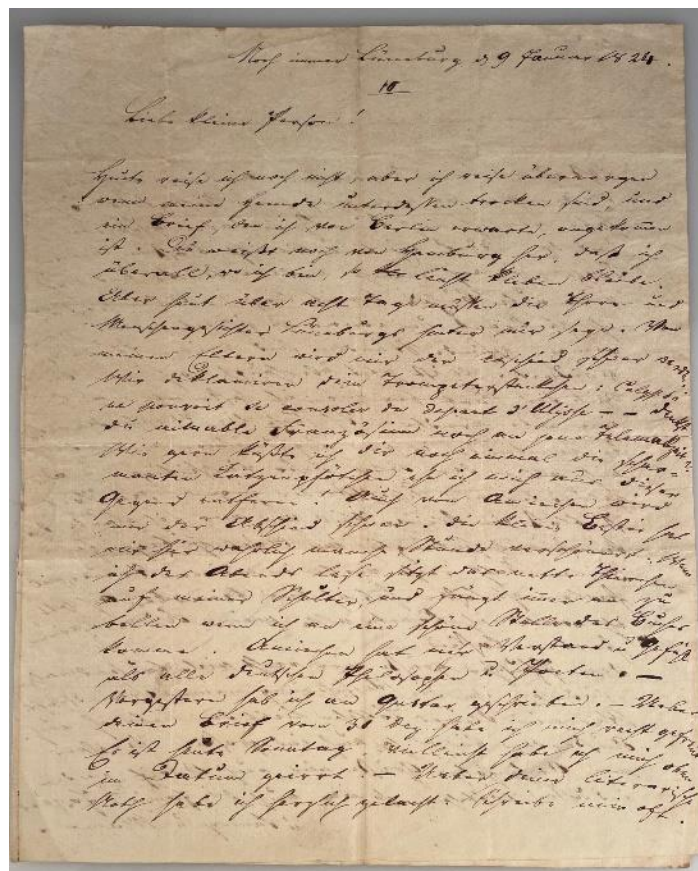 Noch immer Lüneburg d 9 Januar 1824.
Liebe kleine Person!
Heute reise ich noch nicht, aber ich reise übermorgen
wenn meine Hemde unterdessen trocken sind, und
ein Brief, den ich von Berlin erwarte, angekommen
ist. Du weißt noch von Hamburg her, daß ich
überall, wo ich bin, so leicht kleben bleibe.
Aber heut über acht Tag müssen die Thore und
Menschengesichter Lüneburgs hinter mir seyn. Von
meinen Eltern wird mir der Abschied schwer
Wir deklamiren dein Trompeterstückchen: Calypso
ne pouvoit se consoler du depart d'Ulisse – – denkst
du aimable Französinn noch an jene
Wie gern küßte ich dir noch einmal die
ehe ich mich aus dieser
Gegend entferne! Auch von Amischen wird
mir der Abschied schwer. Die kleine Bestie hat
mir hier wahrlich manche Stunde verschönert. Wenn
ich des Abends lese sitzt das nette Thierchen
auf meiner Schulter, und fängt immer an zu
bellen wenn ich an eine schöne Stelle des Buches
komme. Amischen hat mehr Verstand u Gefühl
als alle deutschen Philosophen u Poeten. –
Vorgestern hab ich an Gustav geschrieben. – Ueber
deinen Brief vom 30 Dez habe ich mich recht gefreut
Es ist heute Sonntag vielleicht habe ich mich oben
im Datum geirrt. – Ueber deine literarische
Noth habe ich herzlich gelacht. Schreibe mir oft.